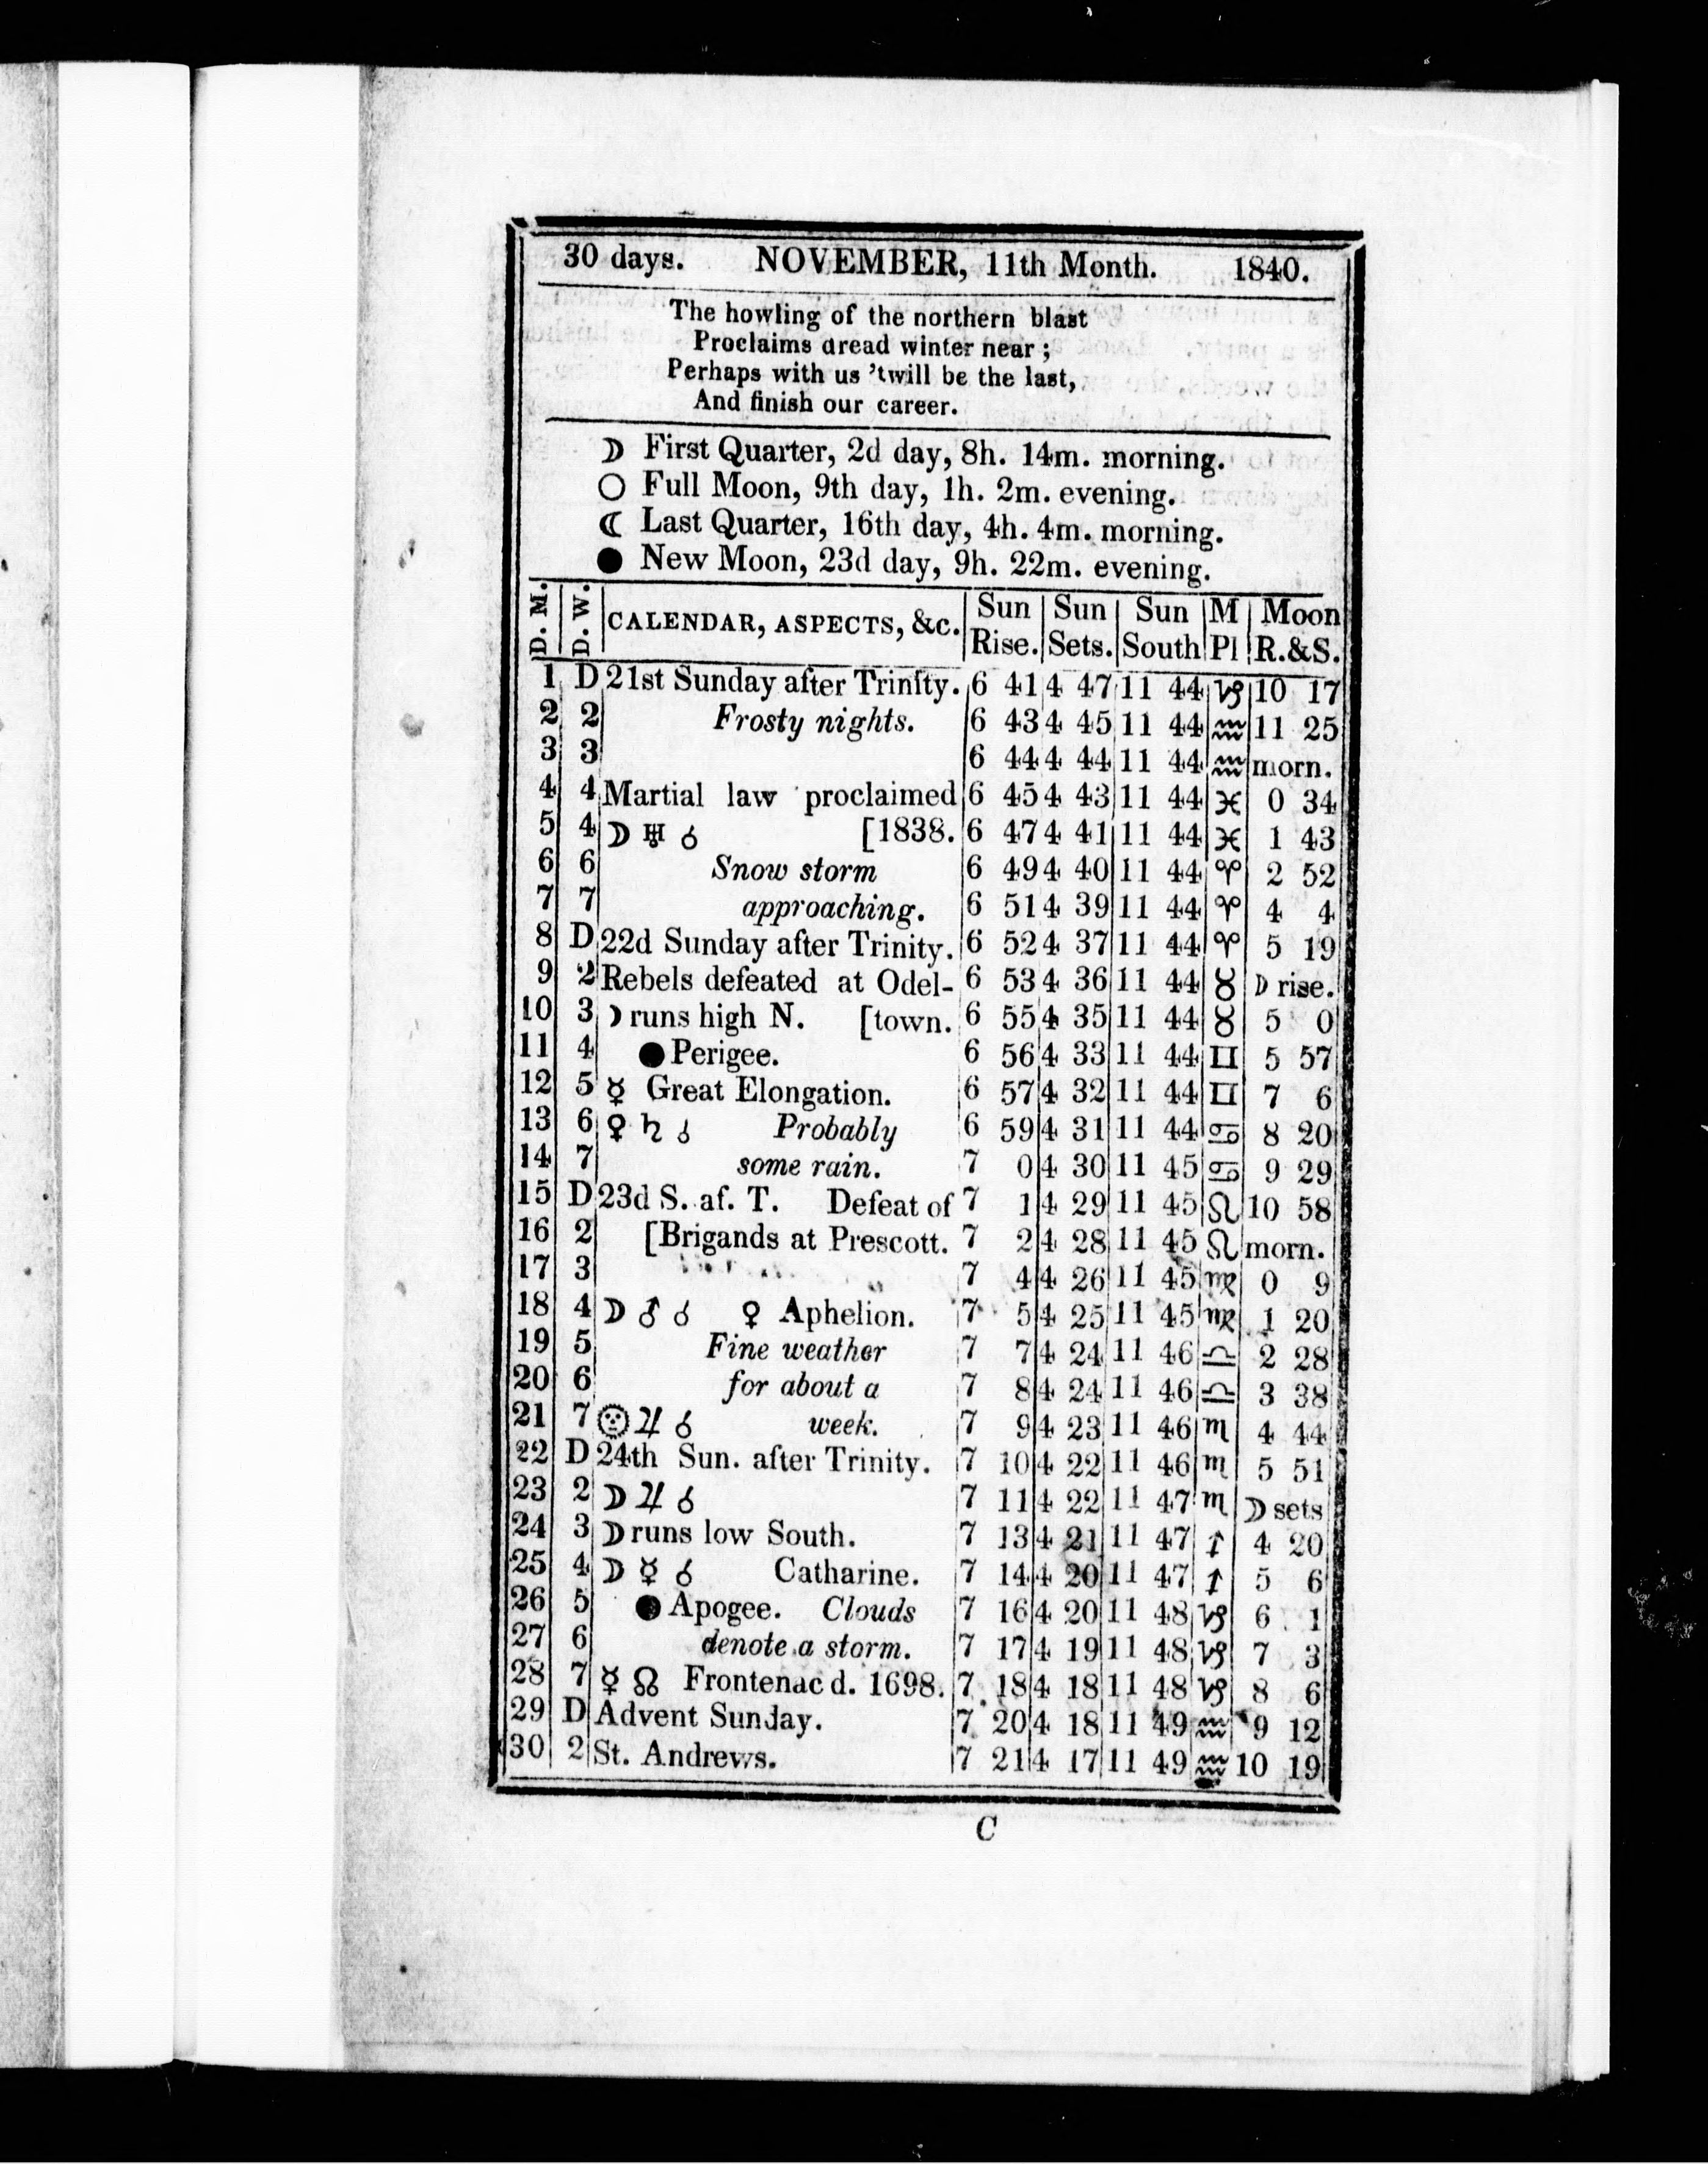 30 days. NOVEMBER, 11th Month. 1840.
The howling of the northern blast
Proclaims dread winter near ;
Perhaps with us 'twill be the last,
And finish our career.
☽ First Quarter, 2d day, 8h. 14m. morning.
○ Full Moon, 9th day, 1h. 2m. evening.
☾ Last Quarter, 16th day, 4h. 4m. morning.
● New Moon, 23d day, 9h. 22m. evening.
D. M. D. W. CALENDAR, ASPECTS, &c. Sun Rise. Sun Sets. Sun South M Pl Moon R.&S.
1 D 21st Sunday after Trinity. 6 41 4 47 11 44 ♑ 10 17
2 2 Frosty nights. 6 43 4 45 11 44 ♒ 11 25
3 3 6 44 4 44 11 44 ♒ morn.
4 4 Martial law proclaimed 6 45 4 43 11 44 ♓ 0 34
5 4 ☽ ♅ ☌ [1838. 6 47 4 41 11 44 ♓ 1 43
6 6 Snow storm 6 49 4 40 11 44 ♈ 2 52
7 7 approaching. 6 51 4 39 11 44 ♈ 4 4
8 D 22d Sunday after Trinity. 6 52 4 37 11 44 ♈ 5 19
9 2 Rebels defeated at Odel- 6 53 4 36 11 44 ♉ ☽ rise.
10 3 ☽ runs high N. [town. 6 55 4 35 11 44 ♉ 5 0
11 4 ● Perigee. 6 56 4 33 11 44 ♊ 5 57
12 5 ☿ Great Elongation. 6 57 4 32 11 44 ♊ 7 6
13 6 ♀ ♄ ☌ Probably 6 59 4 31 11 44 ♋ 8 20
14 7 some rain. 7 0 4 30 11 45 ♋ 9 29
15 D 23d S. af. T. Defeat of 7 1 4 29 11 45 ♌ 10 58
16 2 [Brigands at Prescott. 7 2 4 28 11 45 ♌ morn.
17 3 7 4 4 26 11 45 ♍ 0 9
18 4 ☽ ♂ ☌ ♀ Aphelion. 7 5 4 25 11 45 ♍ 1 20
19 5 Fine weather 7 7 4 24 11 46 ♎ 2 28
20 6 for about a 7 8 4 24 11 46 ♎ 3 38
21 7 ☉ ♃ ☌ week. 7 9 4 23 11 46 ♏ 4 44
22 D 24th Sun. after Trinity. 7 10 4 22 11 46 ♏ 5 51
23 2 ☽ ♃ ☌ 7 11 4 22 11 47 ♏ ☽ sets
24 3 ☽ runs low South. 7 13 4 21 11 47 ♐ 4 20
25 4 ☽ ☿ ☌ Catharine. 7 14 4 20 11 47 ♐ 5 6
26 5 ● Apogee. Clouds 7 16 4 20 11 48 ♑ 6 1
27 6 denote a storm. 7 17 4 19 11 48 ♑ 7 3
28 7 ☿ ☊ Frontenac d. 1698. 7 18 4 18 11 48 ♑ 8 6
29 D Advent Sunday. 7 20 4 18 11 49 ♒ 9 12
30 2 St. Andrews. 7 21 4 17 11 49 ♒ 10 19
C